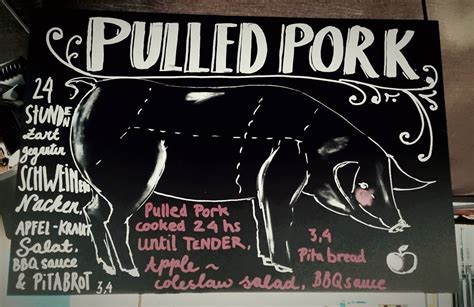 PULLED PORK
24
STUNDEN
zart
gegarten
SCHWEINE
Nacken,
APFEL-KRAUT
Salat,
BBQ SAUCE
& PITABROT 3,4
Pulled Pork
cooked 24 hs
until TENDER,
Apple~
coleslaw salad, BBQ sauce
3,4
Pita bread